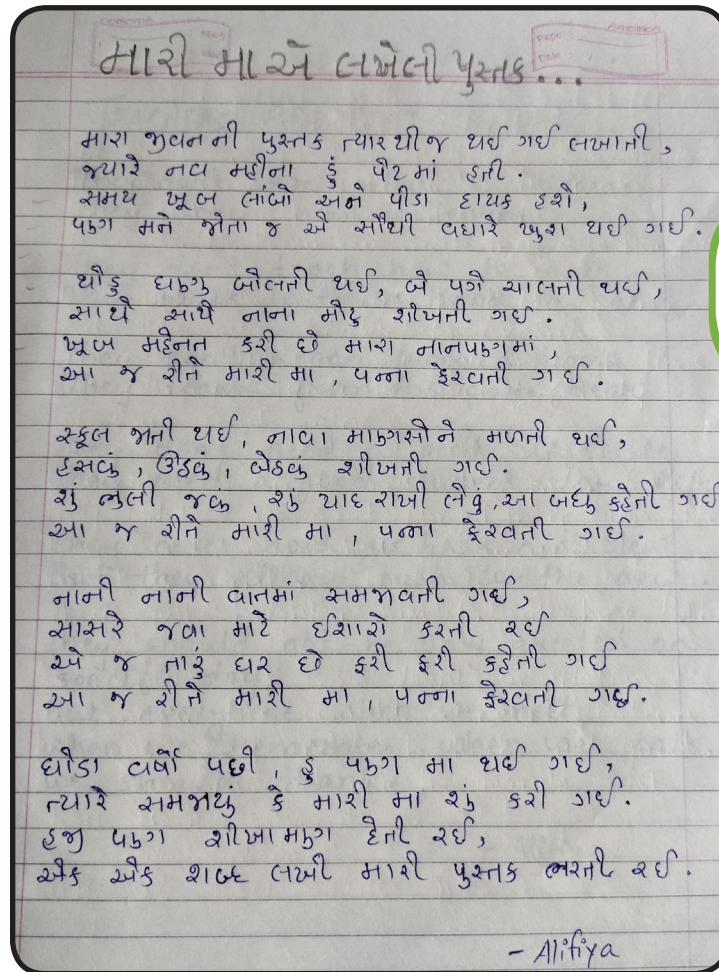 મારી મા એ લખેલી પુસ્તક...
મારા જીવન ની પુસ્તક ત્યાર થી જ થઈ ગઈ લખાતી,
જ્યારે નવ મહીના હું પેટ માં હતી.
સમય ખૂબ લાંબો અને પીડા દાયક હશે,
પણ મને જોતા જ એ સૌથી વધારે ખુશ થઈ ગઈ.
થોડુ ઘણુ બોલતી થઈ, બે પગે ચાલતી થઈ,
સાથે સાથે નાના મોટુ શીખતી ગઈ.
ખૂબ મહેનત કરી છે મારા નાનપણમાં,
આ જ રીતે મારી મા, પન્ના ફેરવતી ગઈ.
સ્કૂલ જાતી થઈ, નાવા માણસોને મળતી થઈ,
હસવું, ઊઠવું, બેઠવું શીખતી ગઈ.
શું ભુલી જવું, શું યાદ રાખી લેવું, આ બધુ કહેતી ગઈ
આ જ રીતે મારી મા, પન્ના ફેરવતી ગઈ.
નાની નાની વાતમાં સમજાવતી ગઈ,
સાસરે જવા માટે ઈશારો કરતી રઈ
એ જ તારું ઘર છે ફરી ફરી કહેતી ગઈ
આ જ રીતે મારી મા, પન્ના ફેરવતી ગઈ.
થોડા વર્ષો પછી, હું પણ મા થઈ ગઈ,
ત્યારે સમજાયું કે મારી મા શું કરી ગઈ.
હજી પણ શીખામણ દેતી રઈ,
એક એક શબ્દ લખી મારી પુસ્તક ભરતી રઈ.
- Alifiya